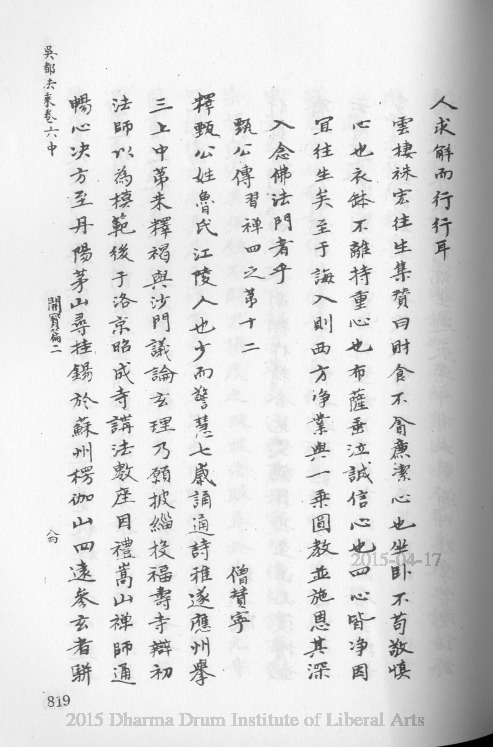 人求解而行行耳
雲棲袾宏往生集贊曰財食不貪廉潔心也坐臥不苟敬慎
心也衣鉢不離持重心也布薩垂泣誠信心也四心皆净因
宜往生矣至于誨人則西方净業與一乘圓教並施恩其深
入念佛法門者乎
甄公傳習禪四之第十二 僧贊寧
釋甄公姓魯氏江陵人也少而警慧七歲誦通詩雅遂應州舉
三上中第未釋褐與沙門議論玄理乃願披緇投福壽寺辯初
法師以為模範後于洛京昭成寺講法數座因禮嵩山禪師通
暢心決方至丹陽茅山尋挂錫於蘇州楞伽山四遠參玄者駢
吳都法乘卷六中 開實篇二 八四
819
2015-04-17
2015 Dharma Drum Institute of Liberal Arts